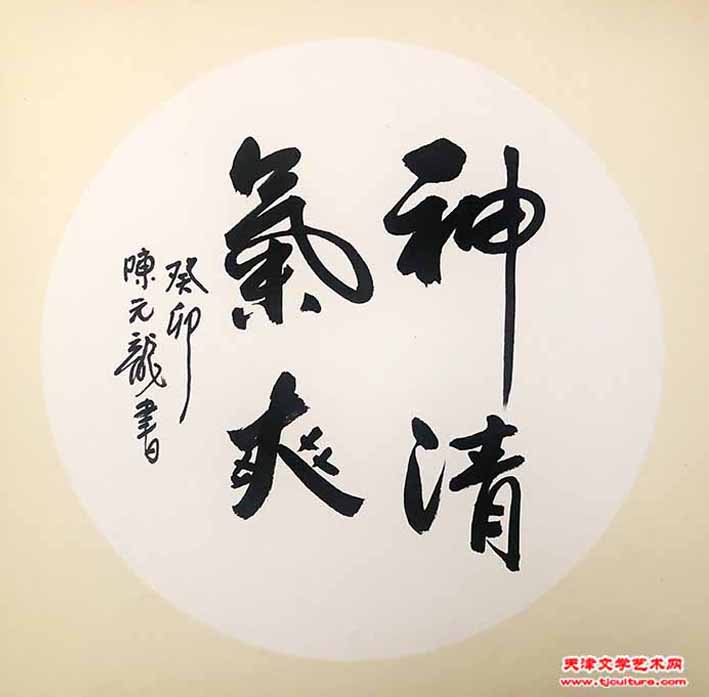 神清
氣爽
癸卯
陳元龍書
天津文学艺术网
www.tjculture.com